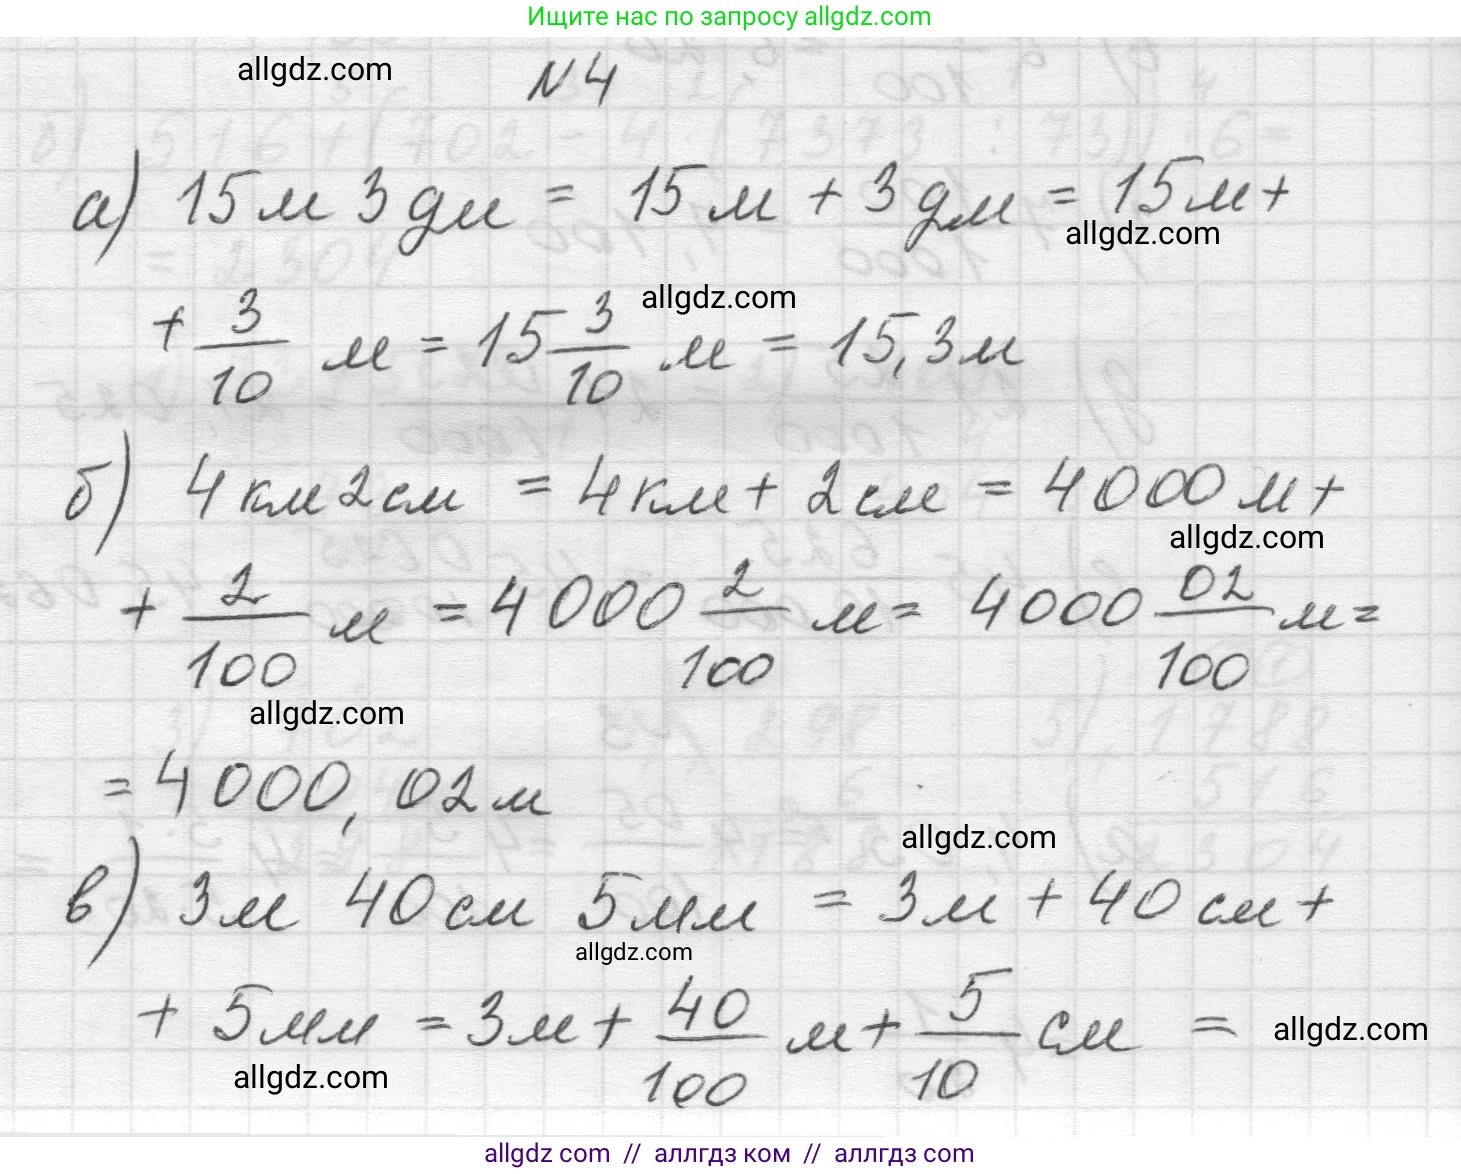 Ищите нас по запросу allgdz.com
allgdz.com
N4
а) 15м 3дм = 15м + 3дм = 15м +
allgdz.com
allgdz.com
+ 3/10 м = 15 3/10 м = 15,3м
б) 4км 2см = 4км + 2см = 4000м +
allgdz.com
+ 2/100 м = 4000 2/100 м = 4000 02/100 м =
allgdz.com
= 4000,02м
allgdz.com
в) 3м 40см 5мм = 3м + 40см +
allgdz.com
+ 5мм = 3м + 40/100 м + 5/10 см =
allgdz.com
allgdz.com
allgdz com // аллгдз ком // аллгдз com